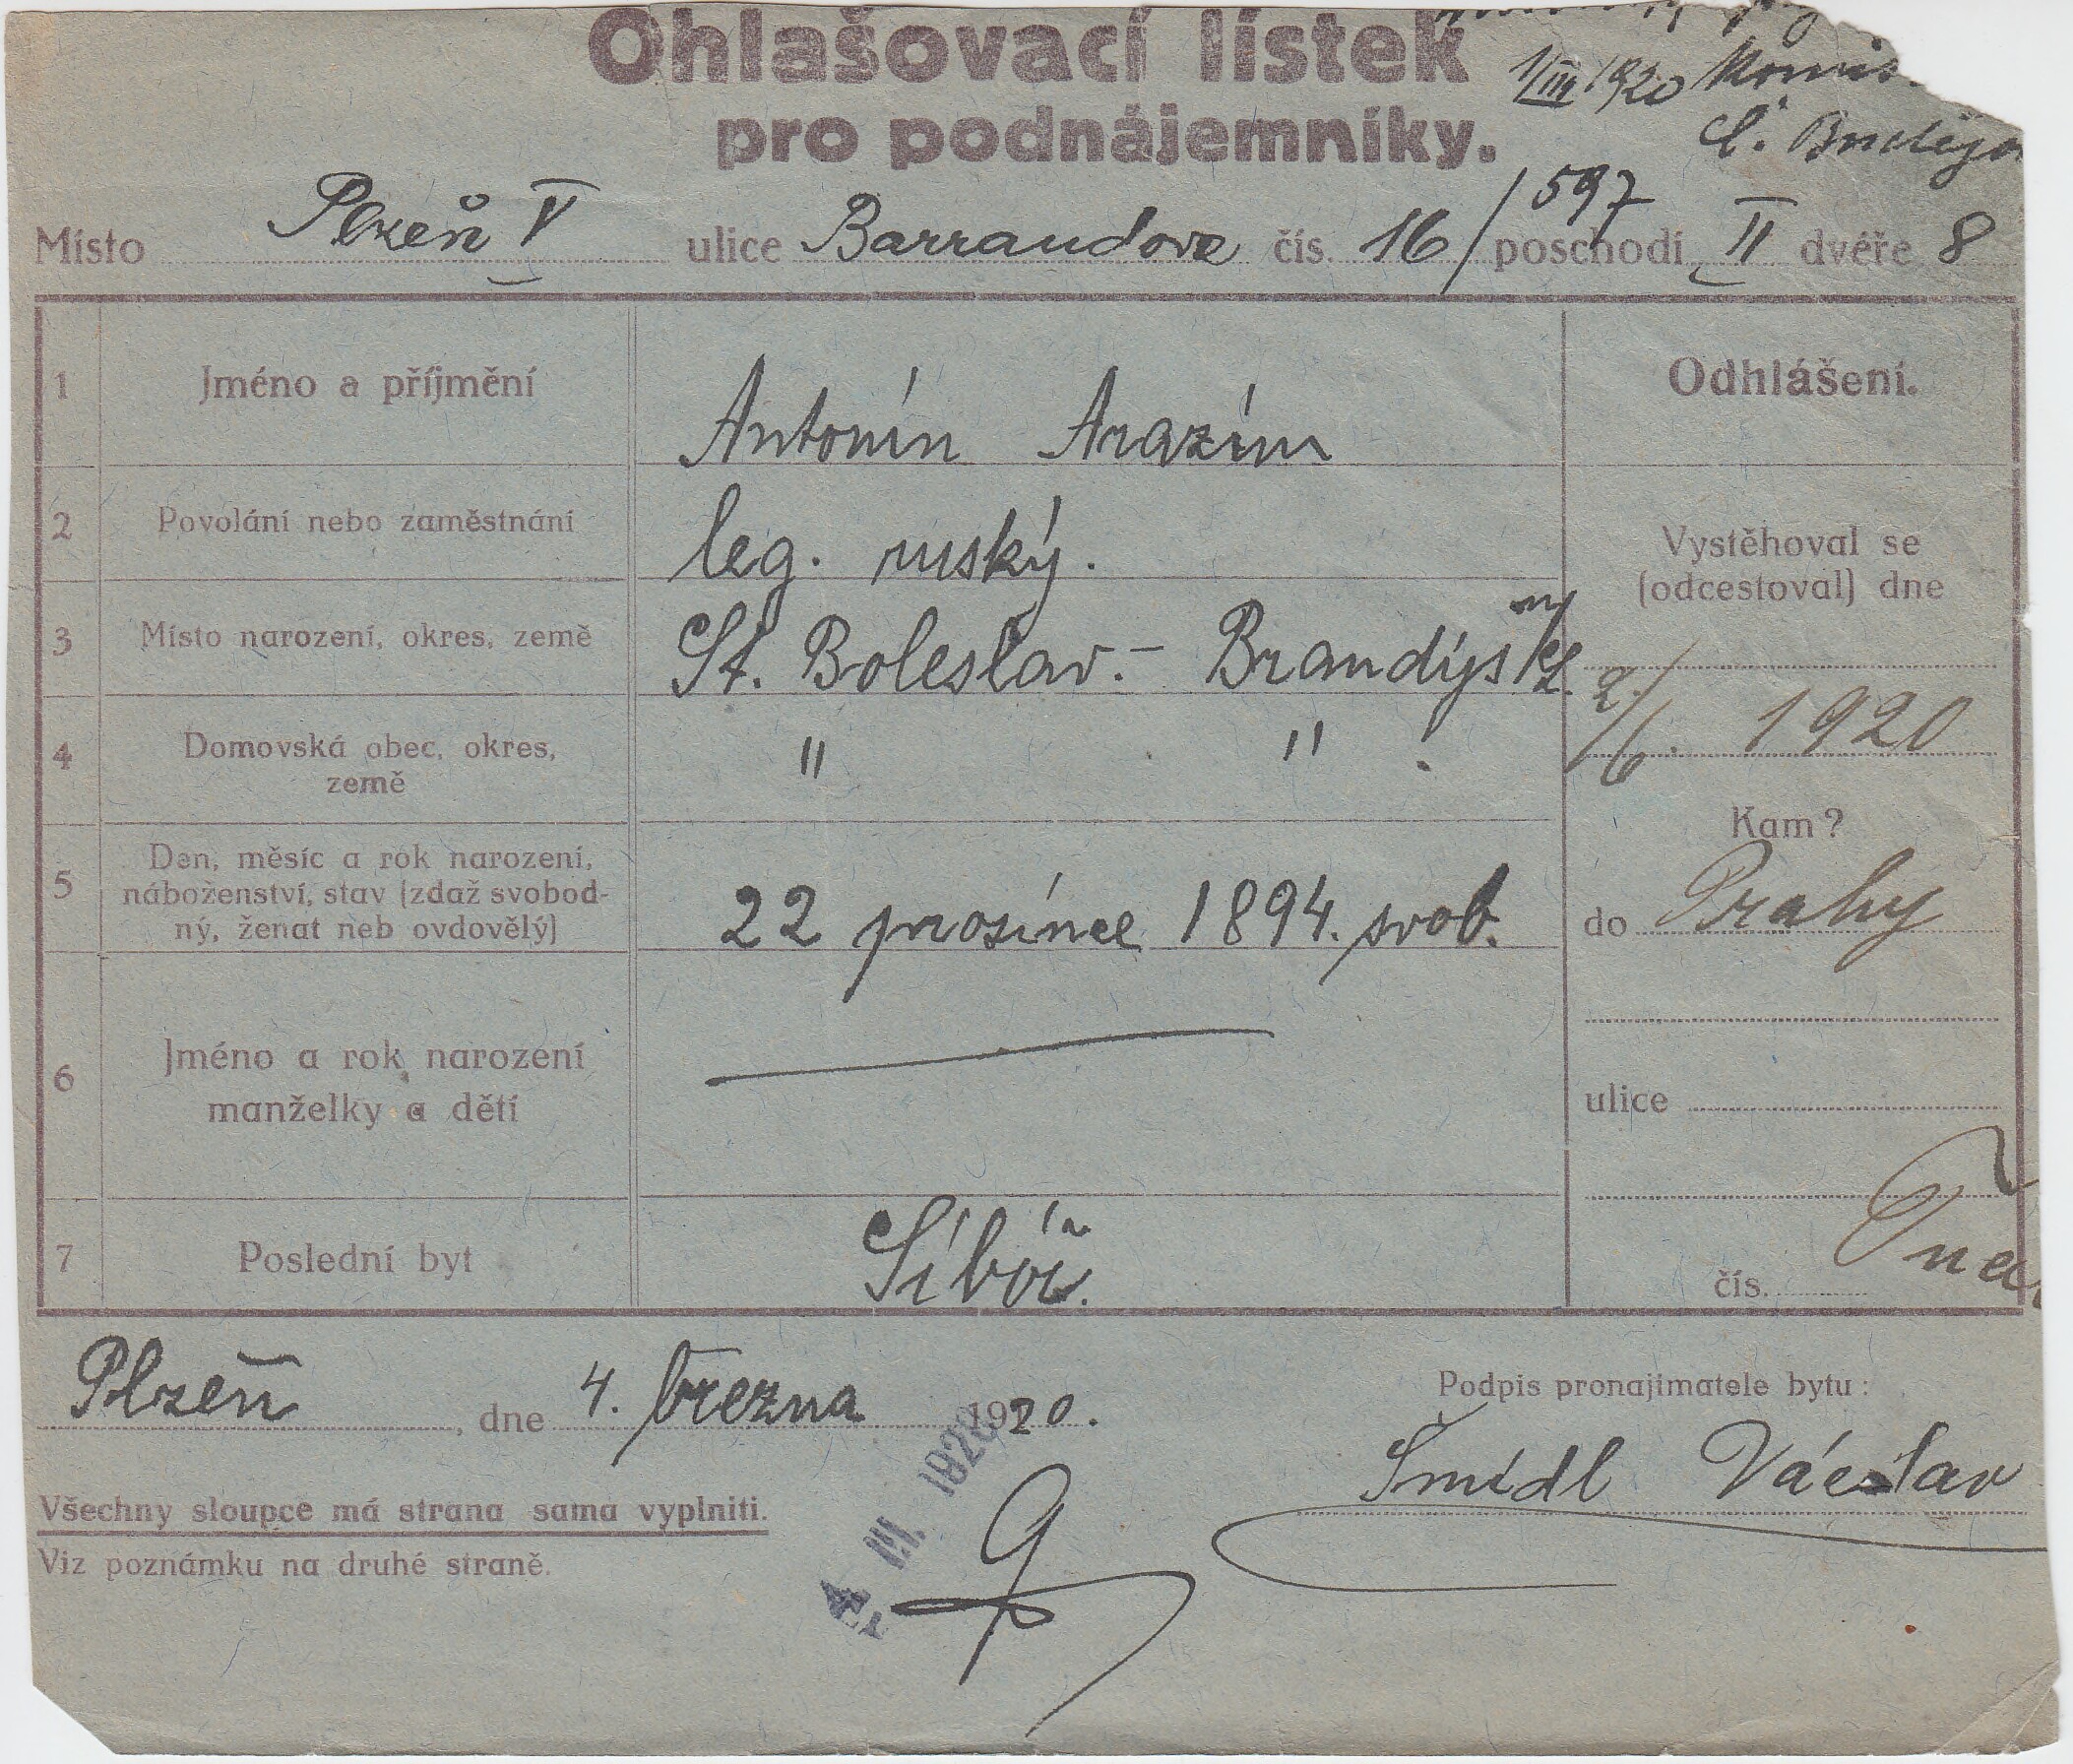 Ohlašovací lístek
pro podnájemníky.
1/III 1920
Č. Budějo
Místo Plzeň V ulice Barrandova čís. 16/597 poschodí II dvéře 8
1 Jméno a příjmění Antonín Arazím
Odhlášení.
2 Povolání nebo zaměstnání leg. ruský.
Vystěhoval se
(odcestoval) dne
3 Místo narození, okres, země St. Boleslav.- Brandýs n/L.
2/6. 1920
4 Domovská obec, okres,
země " "
Kam?
do Prahy
5 Den, měsíc a rok narození,
náboženství, stav (zdaž svobod-
ný, ženat neb ovdovělý) 22 prosince 1894. svob.
6 Jméno a rok narození
manželky a dětí
ulice
7 Poslední byt Sibíř.
čís.
Plzeň, dne 4. března 1920.
Podpis pronajimatele bytu:
Šmídl Václav
4. III. 1920
Všechny sloupce má strana sama vyplniti.
Viz poznámku na druhé straně.